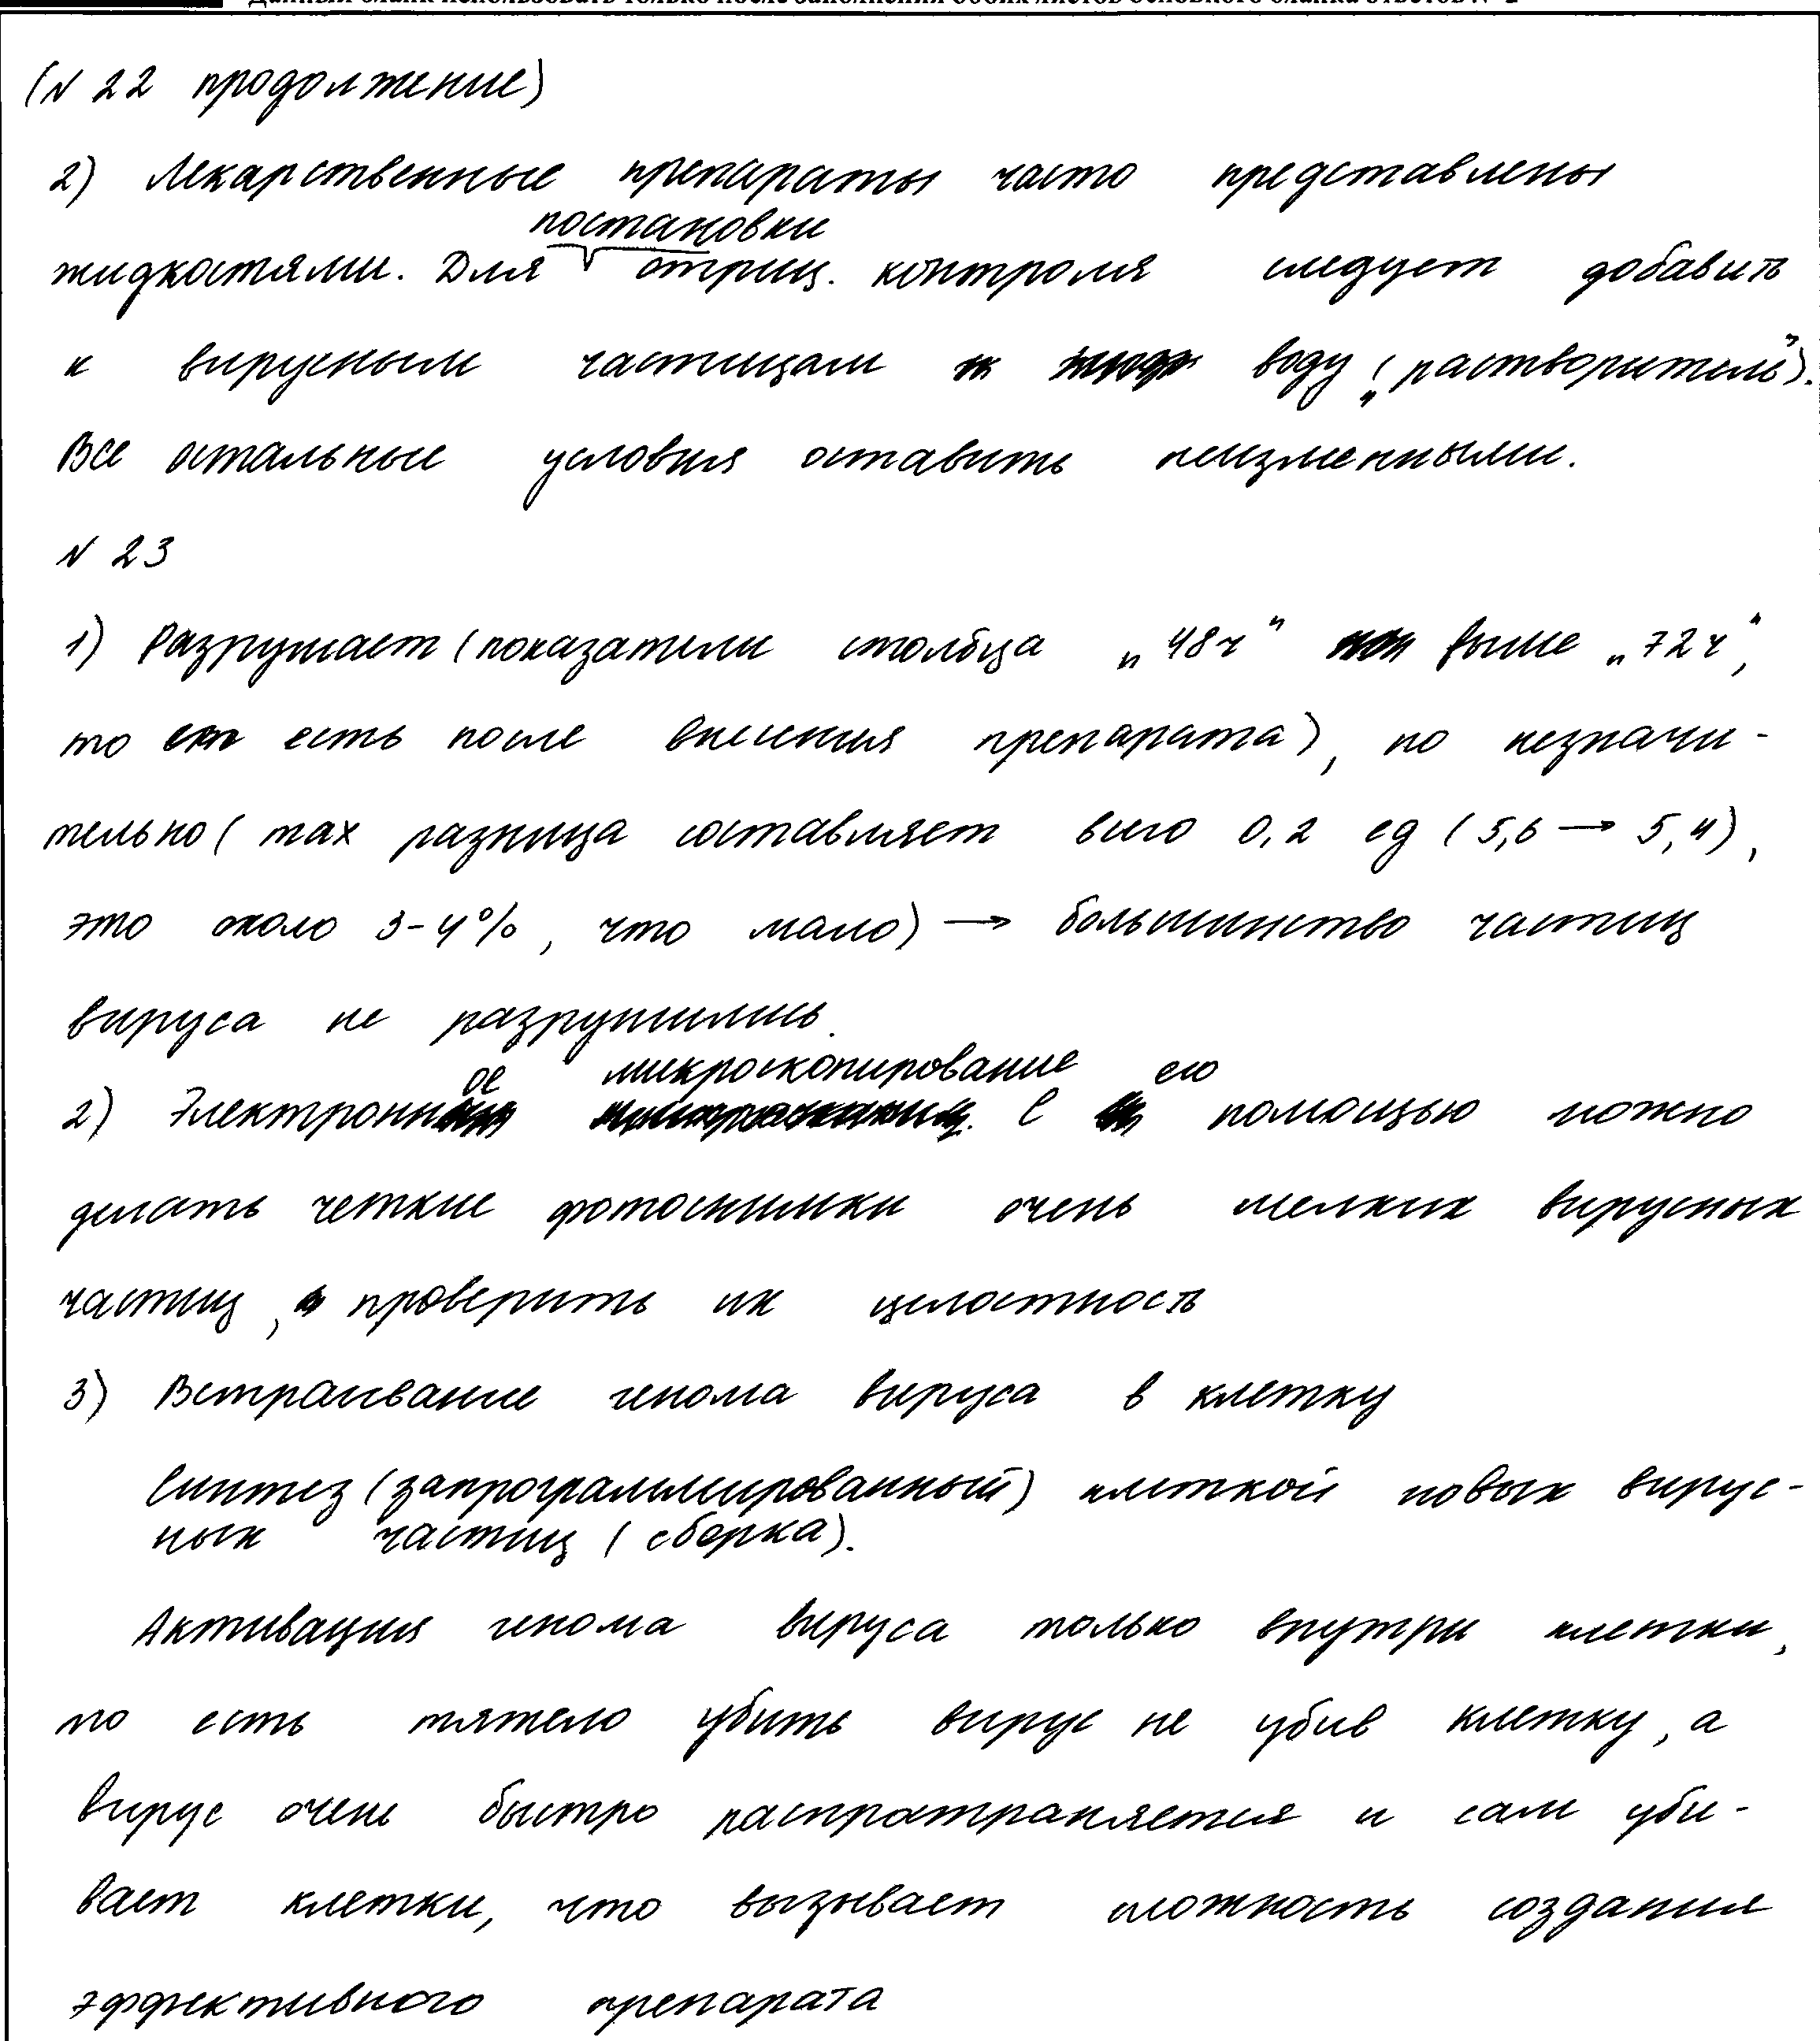 Данный бланк использовать только после заполнения обоих листов основного бланка ответов № 2
(N 22 продолжение)
2) Лекарственные препараты часто представлены
постановки
жидкостями. Для отриц. контроля следует добавить
к вирусным частицам воду („растворитель").
Все остальные условия оставить неизменными.
N 23
1) Разрушает (показатели столбца „48ч" выше „72ч",
то есть после внесения препарата), но незначи-
тельно (max разница составляет всего 0,2 ед (5,6 → 5,4),
это около 3-4%, что мало) → большинство частиц
вируса не разрушились.
ое микроскопирование его
2) Электронн С помощью можно
делать четкие фотоснимки очень мелких вирусных
частиц, проверить их целостность
3) Встраивание генома вируса в клетку
Синтез (запрограммированный) клеткой новых вирус-
ных частиц (сборка).
Активация генома вируса только внутри клетки,
то есть тяжело убить вирус не убив клетку, а
вирус очень быстро распратраняется и сам уби-
вает клетки, что вызывает сложность создания
эффективного препарата